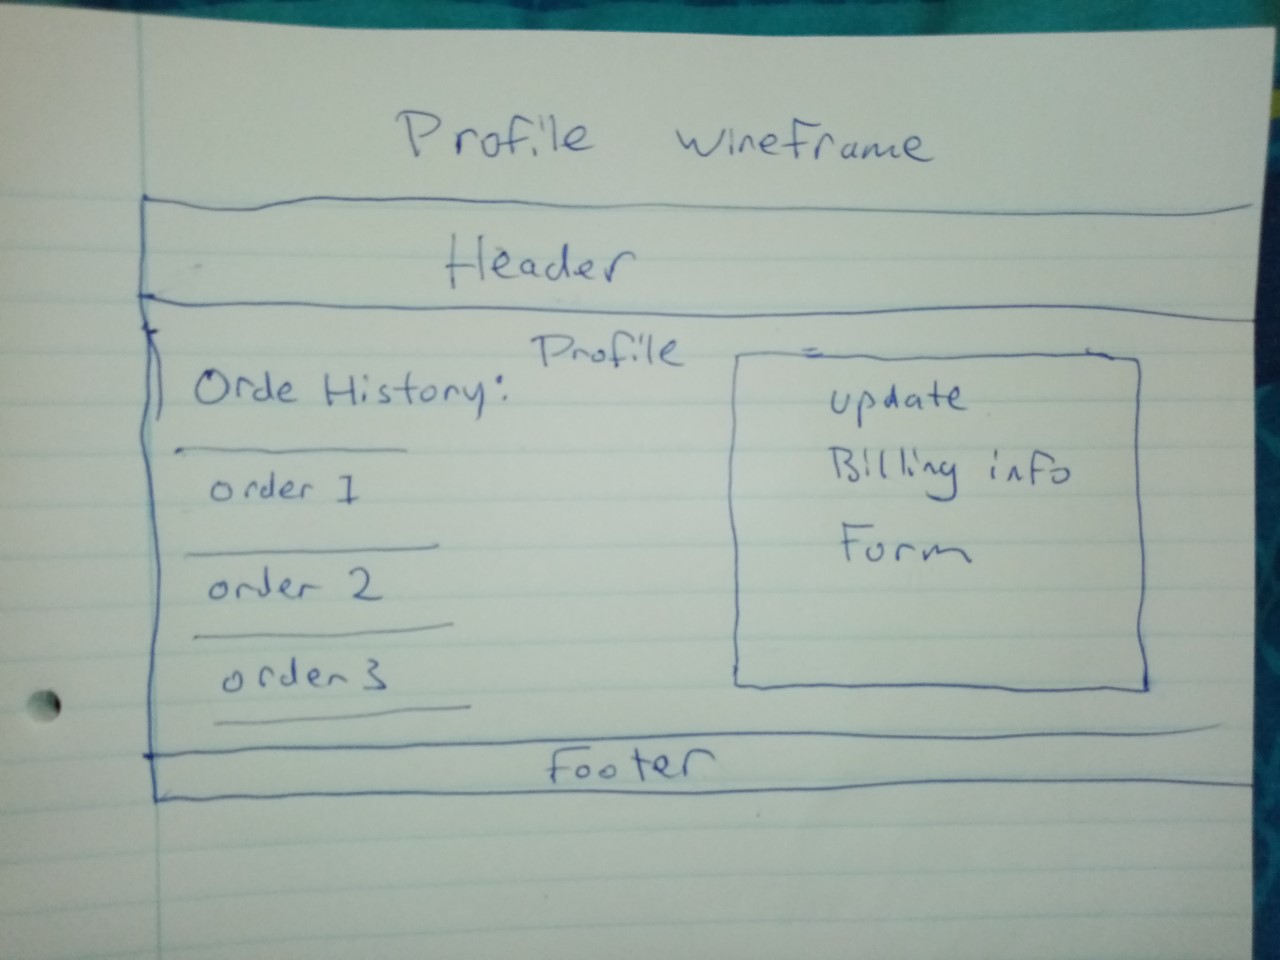 Profile wireframe
Header
Profile
Orde History:
order 1
order 2
order 3
update
Billing info
Form
Footer